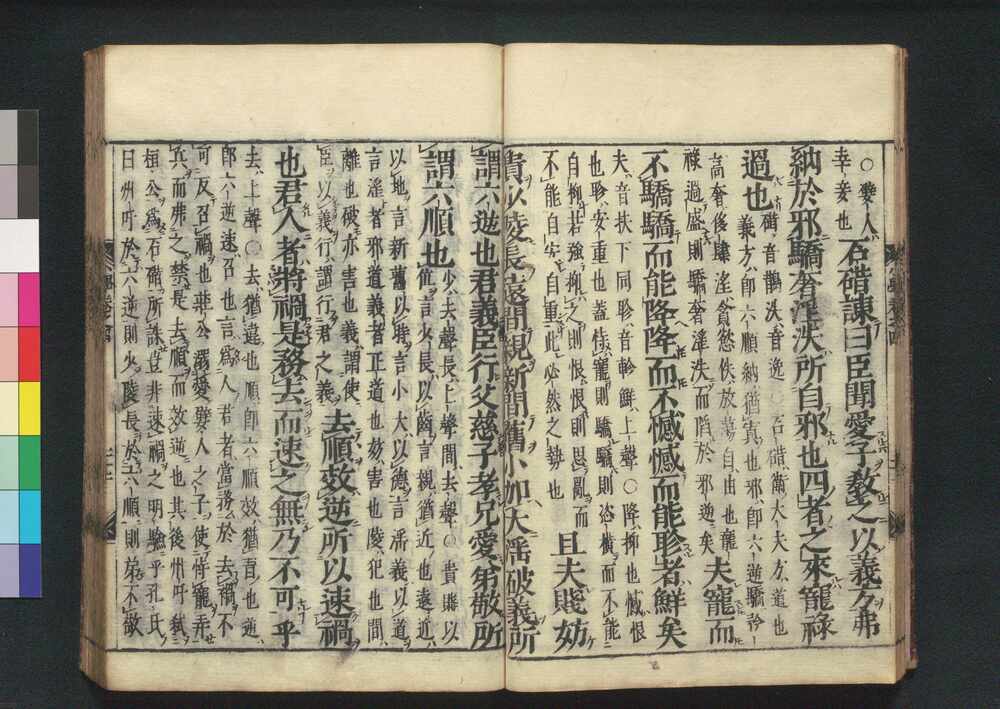 ○嬖人
幸妾也
石碏諫曰臣聞愛子敎之以義方弗
納於邪驕奢淫泆所自邪也四者之來寵祿
過也
碏音鵲泆音逸○石碏衛大夫方道也
義方即六順納猶寘也邪即六逆驕矜
高奢後肆淫貪慾泆放蕩自由也寵
祿過盛則驕奢淫泆而陷於邪逆矣
夫寵而
不驕驕而能降降而不憾憾而能眕者鮮矣
夫音扶下同眕音軫鮮上聲○降抑也憾恨
也眕安重也蓋恃寵則驕驕則恣橫而不能
自抑若強抑之則恨恨則思亂而
不能自安自重此必然之勢也
且夫賤妨
貴少陵長遠間親新間舊小加大淫破義所
謂六逆也君義臣行父慈子孝兄愛弟敬所
謂六順也
少去聲長上聲間去聲○貴賤以
位言少長以齒言親猶近也遠近
以地言新舊以時言小大以德言淫義以道
言淫者邪道義者正道也妨害也陵犯也間
離也破亦害也義謂使
臣以義行謂行君之義
去順效逆所以速禍
也君人者將禍是務去而速之無乃不可乎
去上聲○去猶違也順即六順效猶習也逆
即六逆速召也言爲人君者當務於去禍不
可反召禍也莊公溺愛嬖人之子使恃寵弄
兵而弗之禁是去順而效逆也其後州吁弑
桓公爲石碏所誅豈非速禍之明驗乎孔氏
曰州吁於六逆則少陵長於六順則弟不敬